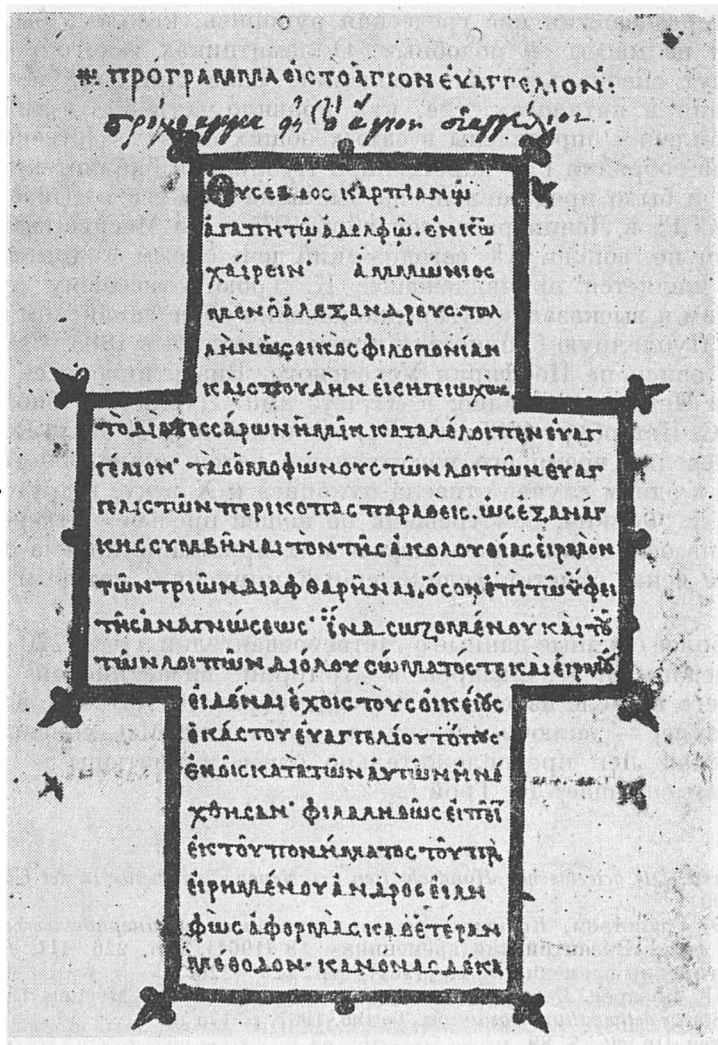 ΠΡΟΓΡΑΜΜΑ ΕΙΣ ΤΟ ΑΓΙΟΝ ΕΥΑΓΓΕΛΙΟΝ:
πρόγραμμα εἰς τὸ ἅγιον
ΕΥΣΕΒΙΟΣ ΚΑΡΠΙΑΝῶ
ἀΓΑΠΗΤῶ ἀΔΕΛΦῶ. ἐΝ Κῶ
ΧΑίΡΕΙΝ· ἀΜΜώΝΙΟΣ
ΜΕΝ ὁ ἀΛΕΞΑΝΔΡΕΥΣ· ΠΟΛ
ΛΗΝ ὡΣ ΕΙΚΟΣ ΦΙΛΟΠΟΝΙΑΝ
ΚΑΙ ΣΠΟΥΔΗΝ ΕΙΣΗΓΗΟΧὼΣ
ΤΟ ΔΙΑ ΤΕΣΣΑΡΩΝ ἡΜῖΝ ΚΑΤΑΛΕΛΟΙΠΕΝ ΕΥΑΓ
ΓΕΛΙΟΝ· ΤΑΣ ὁΜΟΦώΝΟΥΣ ΤῶΝ ΛΟΙΠῶΝ ΕΥΑΓ
ΓΕΛΙΣΤῶΝ ΠΕΡΙΚΟΠΑΣ ΠΑΡΑΘΕΙΣ. ὡΣ ΕΞ ΑΝΑΓ
ΚΗΣ ΣΥΜΒῆΝΑΙ ΤΟΝ ΤῆΣ ἀΚΟΛΟΥΘίΑΣ ΕἱΡΜΟΝ
ΤῶΝ ΤΡΙῶΝ ΔΙΑΦΘΑΡῆΝΑΙ, ὅΣΟΝ ἐΠΙ Τῶ ὕΦΕΙ
ΤῆΣ ἀΝΑΓΝώΣΕΩΣ· ἵΝΑ ΣΩΖΟΜέΝΟΥ ΚΑΙ ΤΟῦ
ΤῶΝ ΛΟΙΠῶΝ ΔΙΟΛΟΥ ΣώΜΑΤΟΣ ΤΕ ΚΑΙ ΕἱΡΜΟῦ
ΕἰΔέΝΑΙ ἔΧΟΙΣ ΤΟΥΣ ΟἰΚΕίΟΥΣ
ἑΚάΣΤΟΥ ΕΥΑΓΓΕΛίΟΥ ΤόΠΟΥΣ·
ἐΝ ΟἷΣ ΚΑΤΑ ΤῶΝ ΑΥΤῶΝ ἠΝέ
ΧΘΗΣΑΝ· ΦΙΛΑΛΗΘῶΣ ΕἰΠΕῖ
ἐΚ ΤΟῦ ΠΟΝήΜΑΤΟΣ ΤΟῦ ΠΡΟ
ΕΙΡΗΜέΝΟΥ ΑΝΔΡΟΣ ΕἰΛΗ
ΦὼΣ ἀΦΟΡΜΑΣ, ΚΑΘ ἑΤέΡΑΝ
ΜέΘΟΔΟΝ· ΚΑΝόΝΑΣ ΔέΚΑ